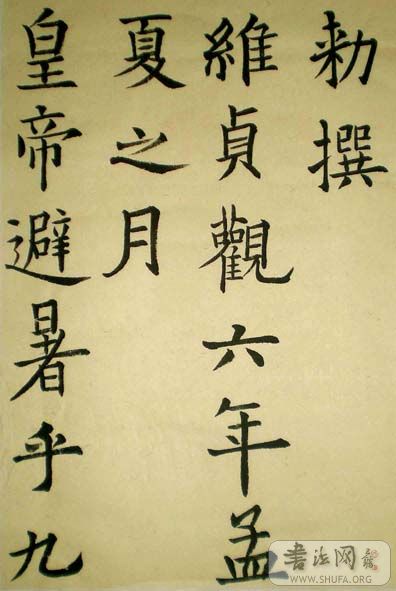 勅撰
維貞觀六年孟
夏之月
皇帝避暑乎九
書法网
WWW.SHUFA.ORG